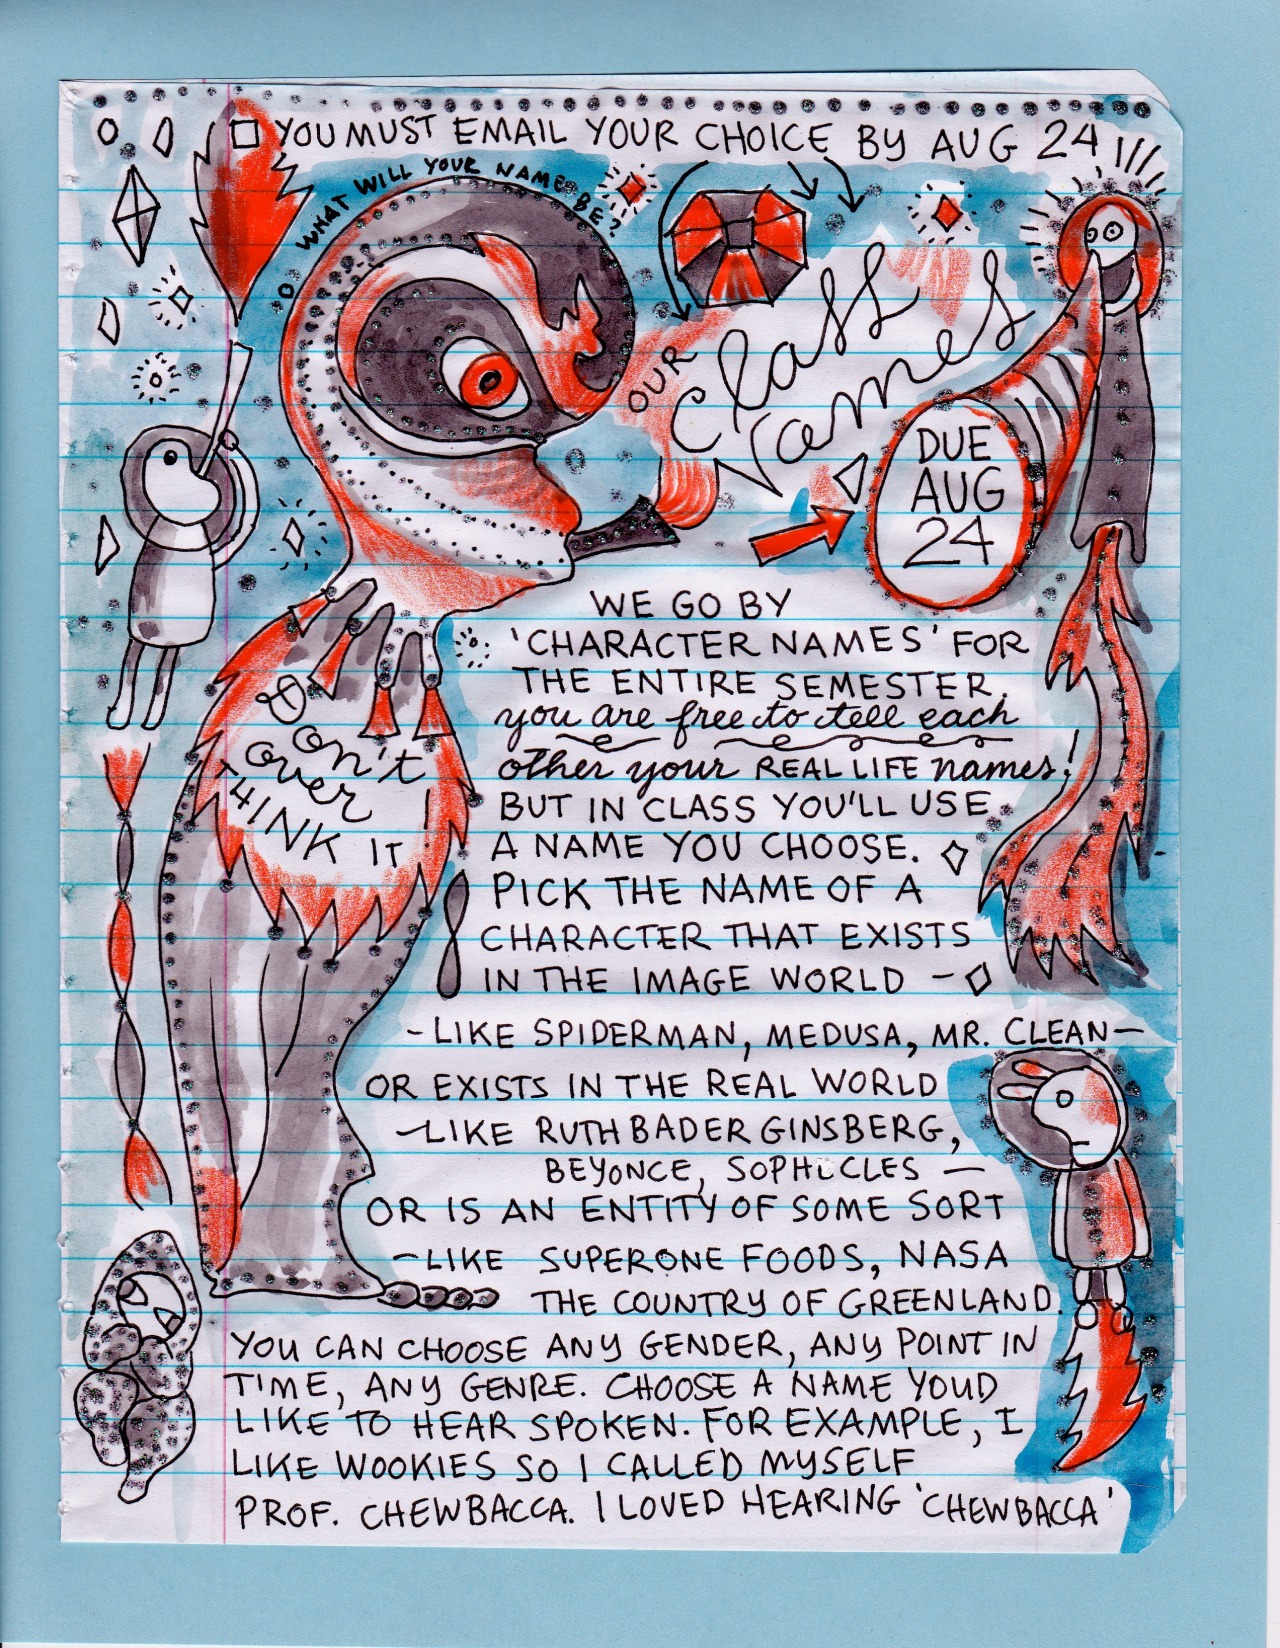 YOU MUST EMAIL YOUR CHOICE BY AUG 24
WHAT WILL YOUR NAME BE?
OUR
Class
Names
DUE
AUG
24
WE GO BY
'CHARACTER NAMES' FOR
THE ENTIRE SEMESTER.
you are free to tell each
other your REAL LIFE names!
BUT IN CLASS YOU'LL USE
A NAME YOU CHOOSE.
PICK THE NAME OF A
CHARACTER THAT EXISTS
IN THE IMAGE WORLD –
Don't
over
THINK IT!
-LIKE SPIDERMAN, MEDUSA, MR. CLEAN-
OR EXISTS IN THE REAL WORLD
-LIKE RUTH BADER GINSBERG,
BEYONCE, SOPHICLES -
OR IS AN ENTITY OF SOME SORT
-LIKE SUPERONE FOODS, NASA
THE COUNTRY OF GREENLAND.
YOU CAN CHOOSE ANY GENDER, ANY POINT IN
TIME, ANY GENRE. CHOOSE A NAME YOUD
LIKE TO HEAR SPOKEN. FOR EXAMPLE, I
LIKE WOOKIES SO I CALLED MYSELF
PROF. CHEWBACCA. I LOVED HEARING 'CHEWBACCA'